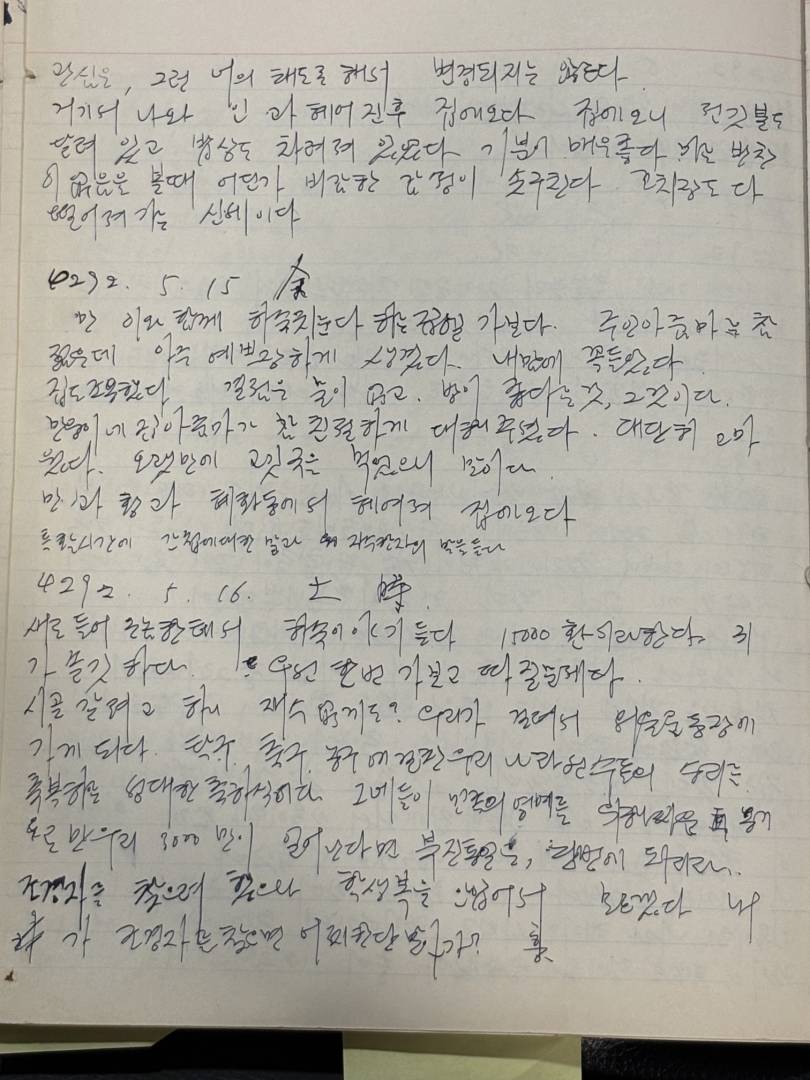 관심은, 그런 너의 태도로 해서 변경되지는 않는다
거기서 나와 인 과 헤어진후 집에오다 집에오니 전깃불도
달려 있고 밥상도 차려져 있었다 기분이 매우좋다 반찬
이 없음을 볼때 어딘가 비감한 감정이 솟구친다 고치장도 다
떨어져가는 신세이다
4292. 5. 15 金
만 이와 함께 하숙 가보다. 주인아줌마는 참
젊은데 아주 예쁘장하게 생겼다. 내맘에 꼭들었다
집도조용했다 결점은 불이 없고, 방이 좁다는것, 그것이다.
집아줌마가 참 친절하게 대해주었다. 대단히 고마
웠다. 오랫만에 고깃국을 먹었으니 말이다.
만과 황과 혜화동에서 헤여져 집에오다
특활시간에 간첩에대한 말과 자수한자의 말을듣다
4292. 5. 16. 土 晴
새로들어 한테서 하숙이야기 듣다 15000환이라한다. 괴
가 하다. 우선 한번 가보고 따질문제다.
시골 갈려고 하니 재수 없게도? 우리가 걸려서 서울운동장에
가게 되다. 탁구, 축구, 농구에 우리 나라선수들의 승리를
축복하는 성대한 축하식이다. 그네들이 민족의영예를 용기
로 만우리 3000만이 일어난다면 북진통일은, 단번에 되리라.
조경자를 찾으려 했으나 학생복을 안입어서 모르겠다 내
가 조경자를찾으면 어찌한단말가?